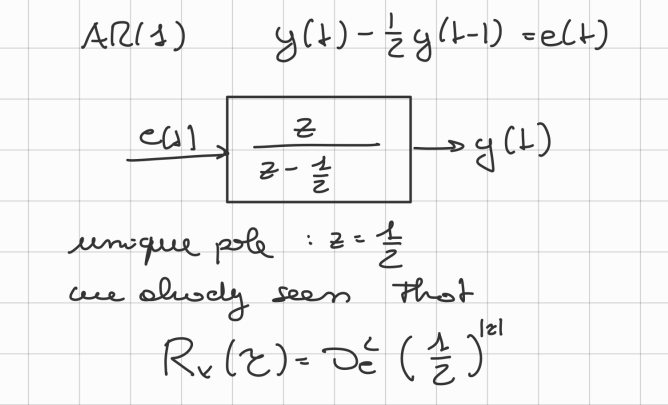 AR(1) y(t) - 1/2 y(t-1) = e(t)
e(t) z / (z - 1/2) → y(t)
unique pole : z = 1/2
we already seen that
Rᵧ(τ) = σₑ² (1/2)^|τ|